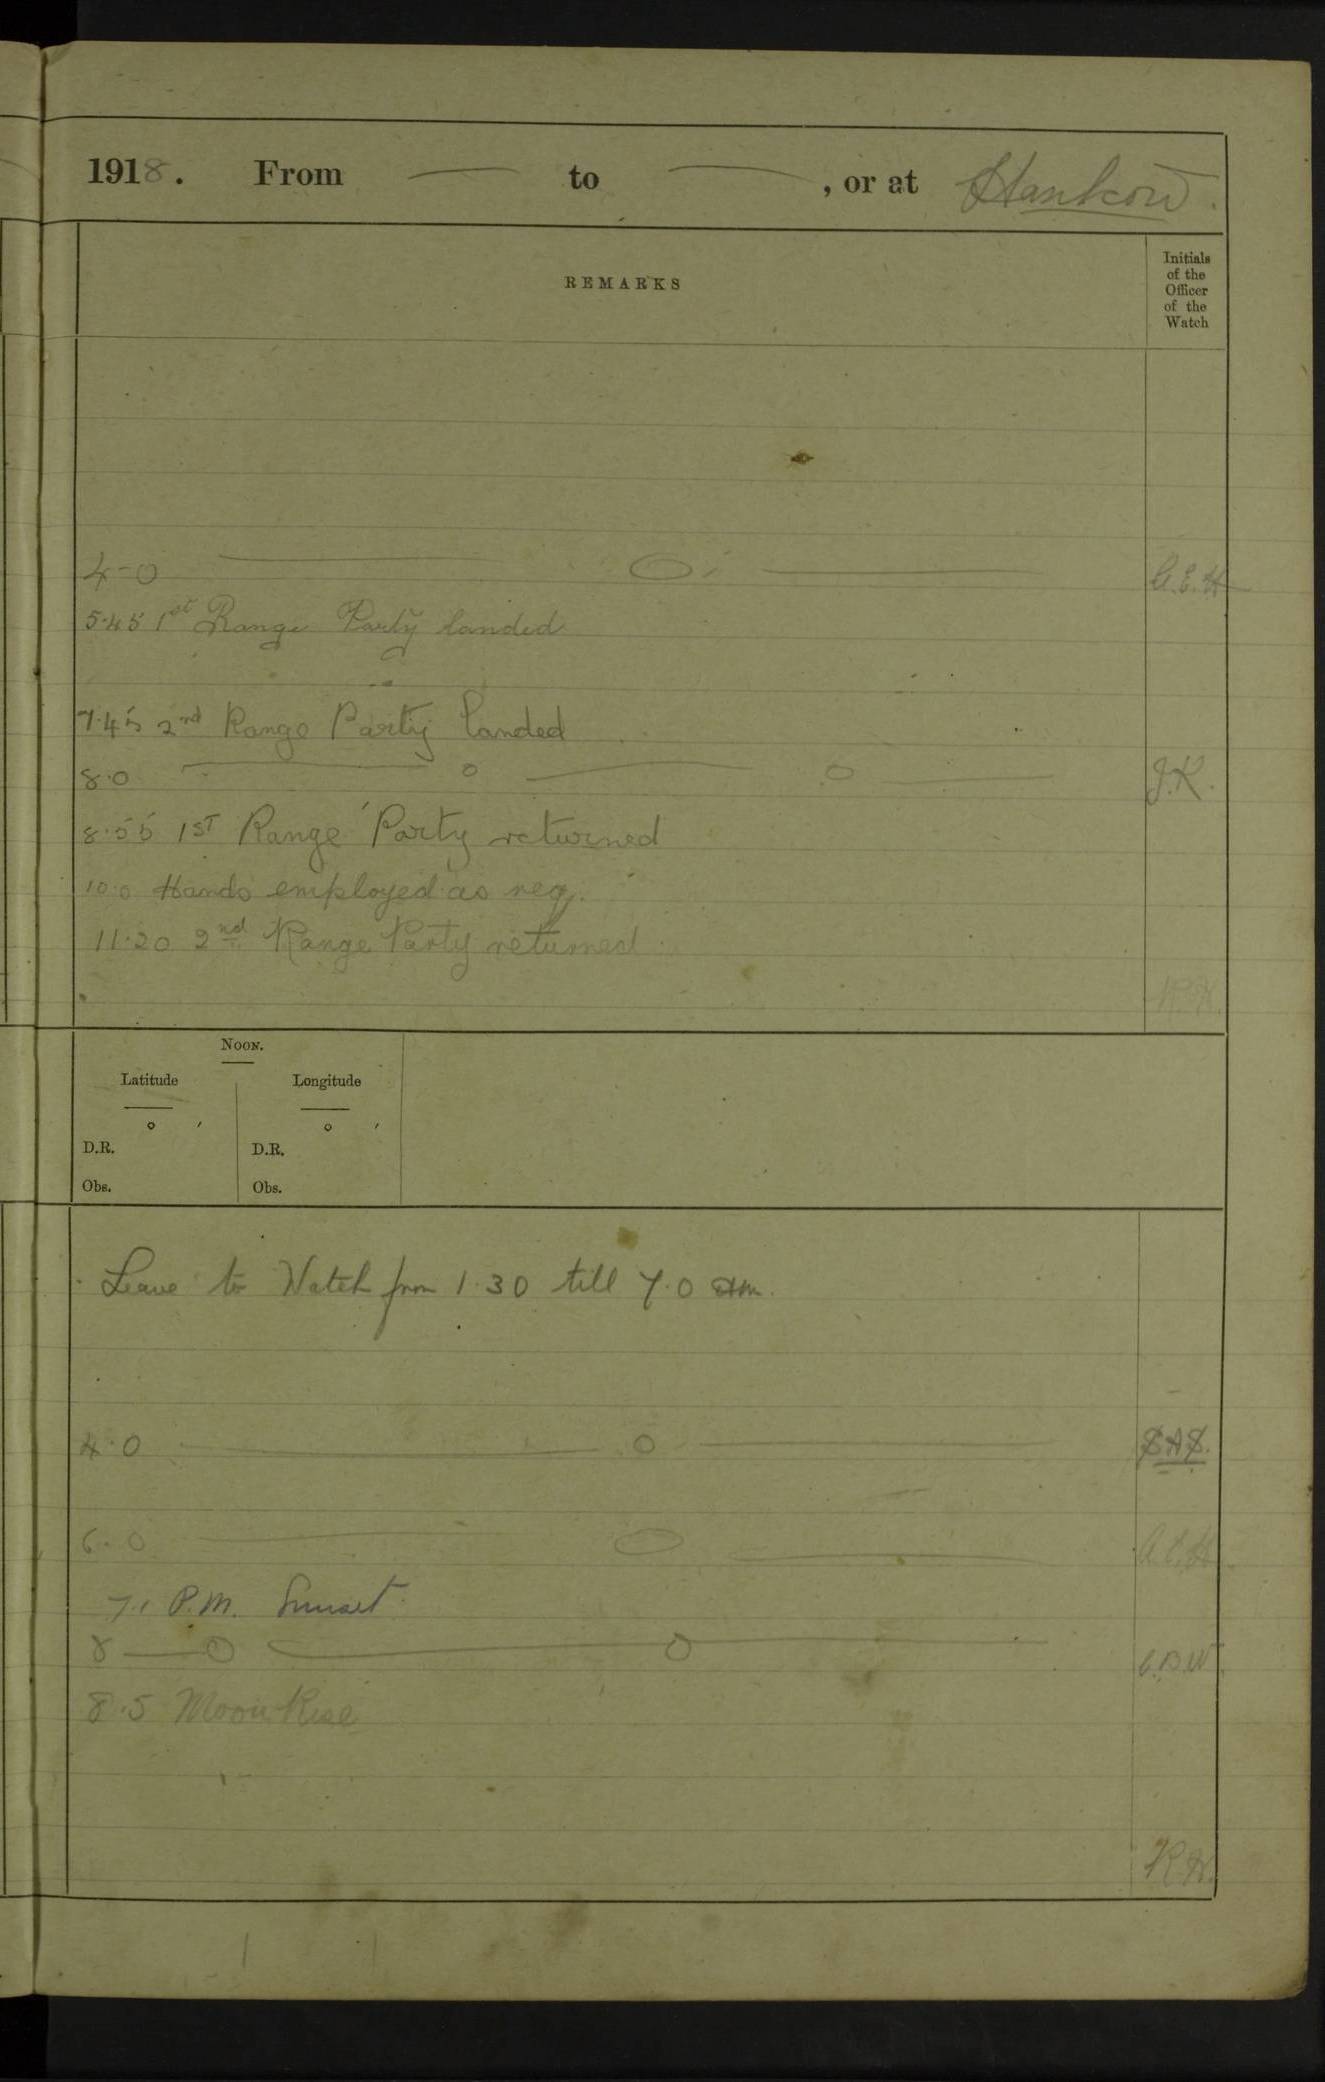 1918. From — to — , or at Hankow.
REMARKS
Initials
of the
Officer
of the
Watch
4-0 O. A.E.H
5.45 1st Range Party landed
7.45 2nd Range Party landed
8.0 o o J.K.
8.55 1ST Range Party returned
10.0 Hands employed as req.
11.20 2nd Range Party returned.
R.H.
NOON.
Latitude Longitude
o ′ o ′
D.R. D.R.
Obs. Obs.
Leave to Watch from 1.30 till 7.0 am.
4.0 O SAS.
6.0 O A.E.H
7.1 P.M. Sunset.
8—O O C.B.W.
8.5 Moon Rise
R.H.